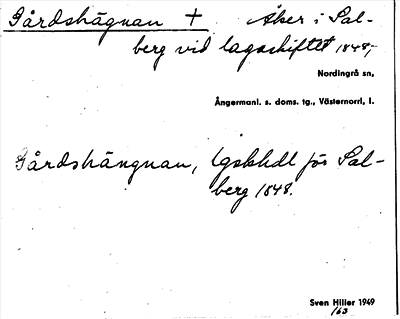 Gårdshägnan + Åker i Sal-
berg vid lagaskiftet 1848,-
Nordingrå sn,
Ångermanl. s. doms. tg., Västernorrl, l.
Gårdshängnan, lgskhdl för Sal-
berg 1848.
Sven Hiller 1949
163